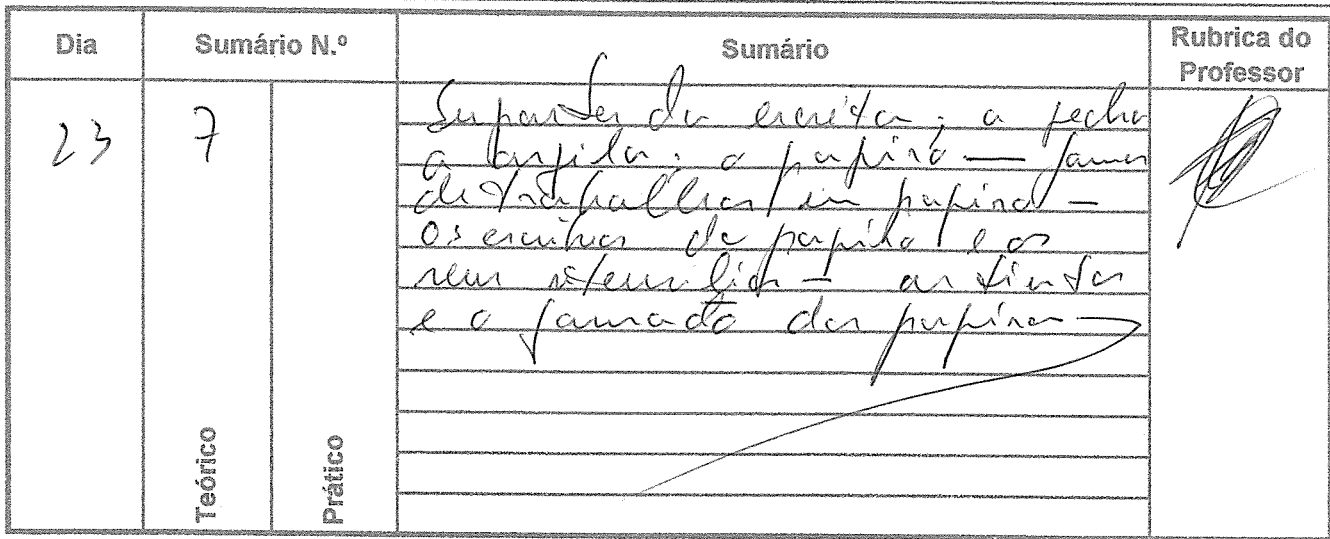 Dia Sumário N.º Sumário Rubrica do Professor
23 7
Suportes da escrita; a pedra
a argila; o papiro — formas
de trabalhar em papiro —
os escribas de papiro e os
seus utensílios — as tintas
e o formato dos papiros —
Teórico
Prático